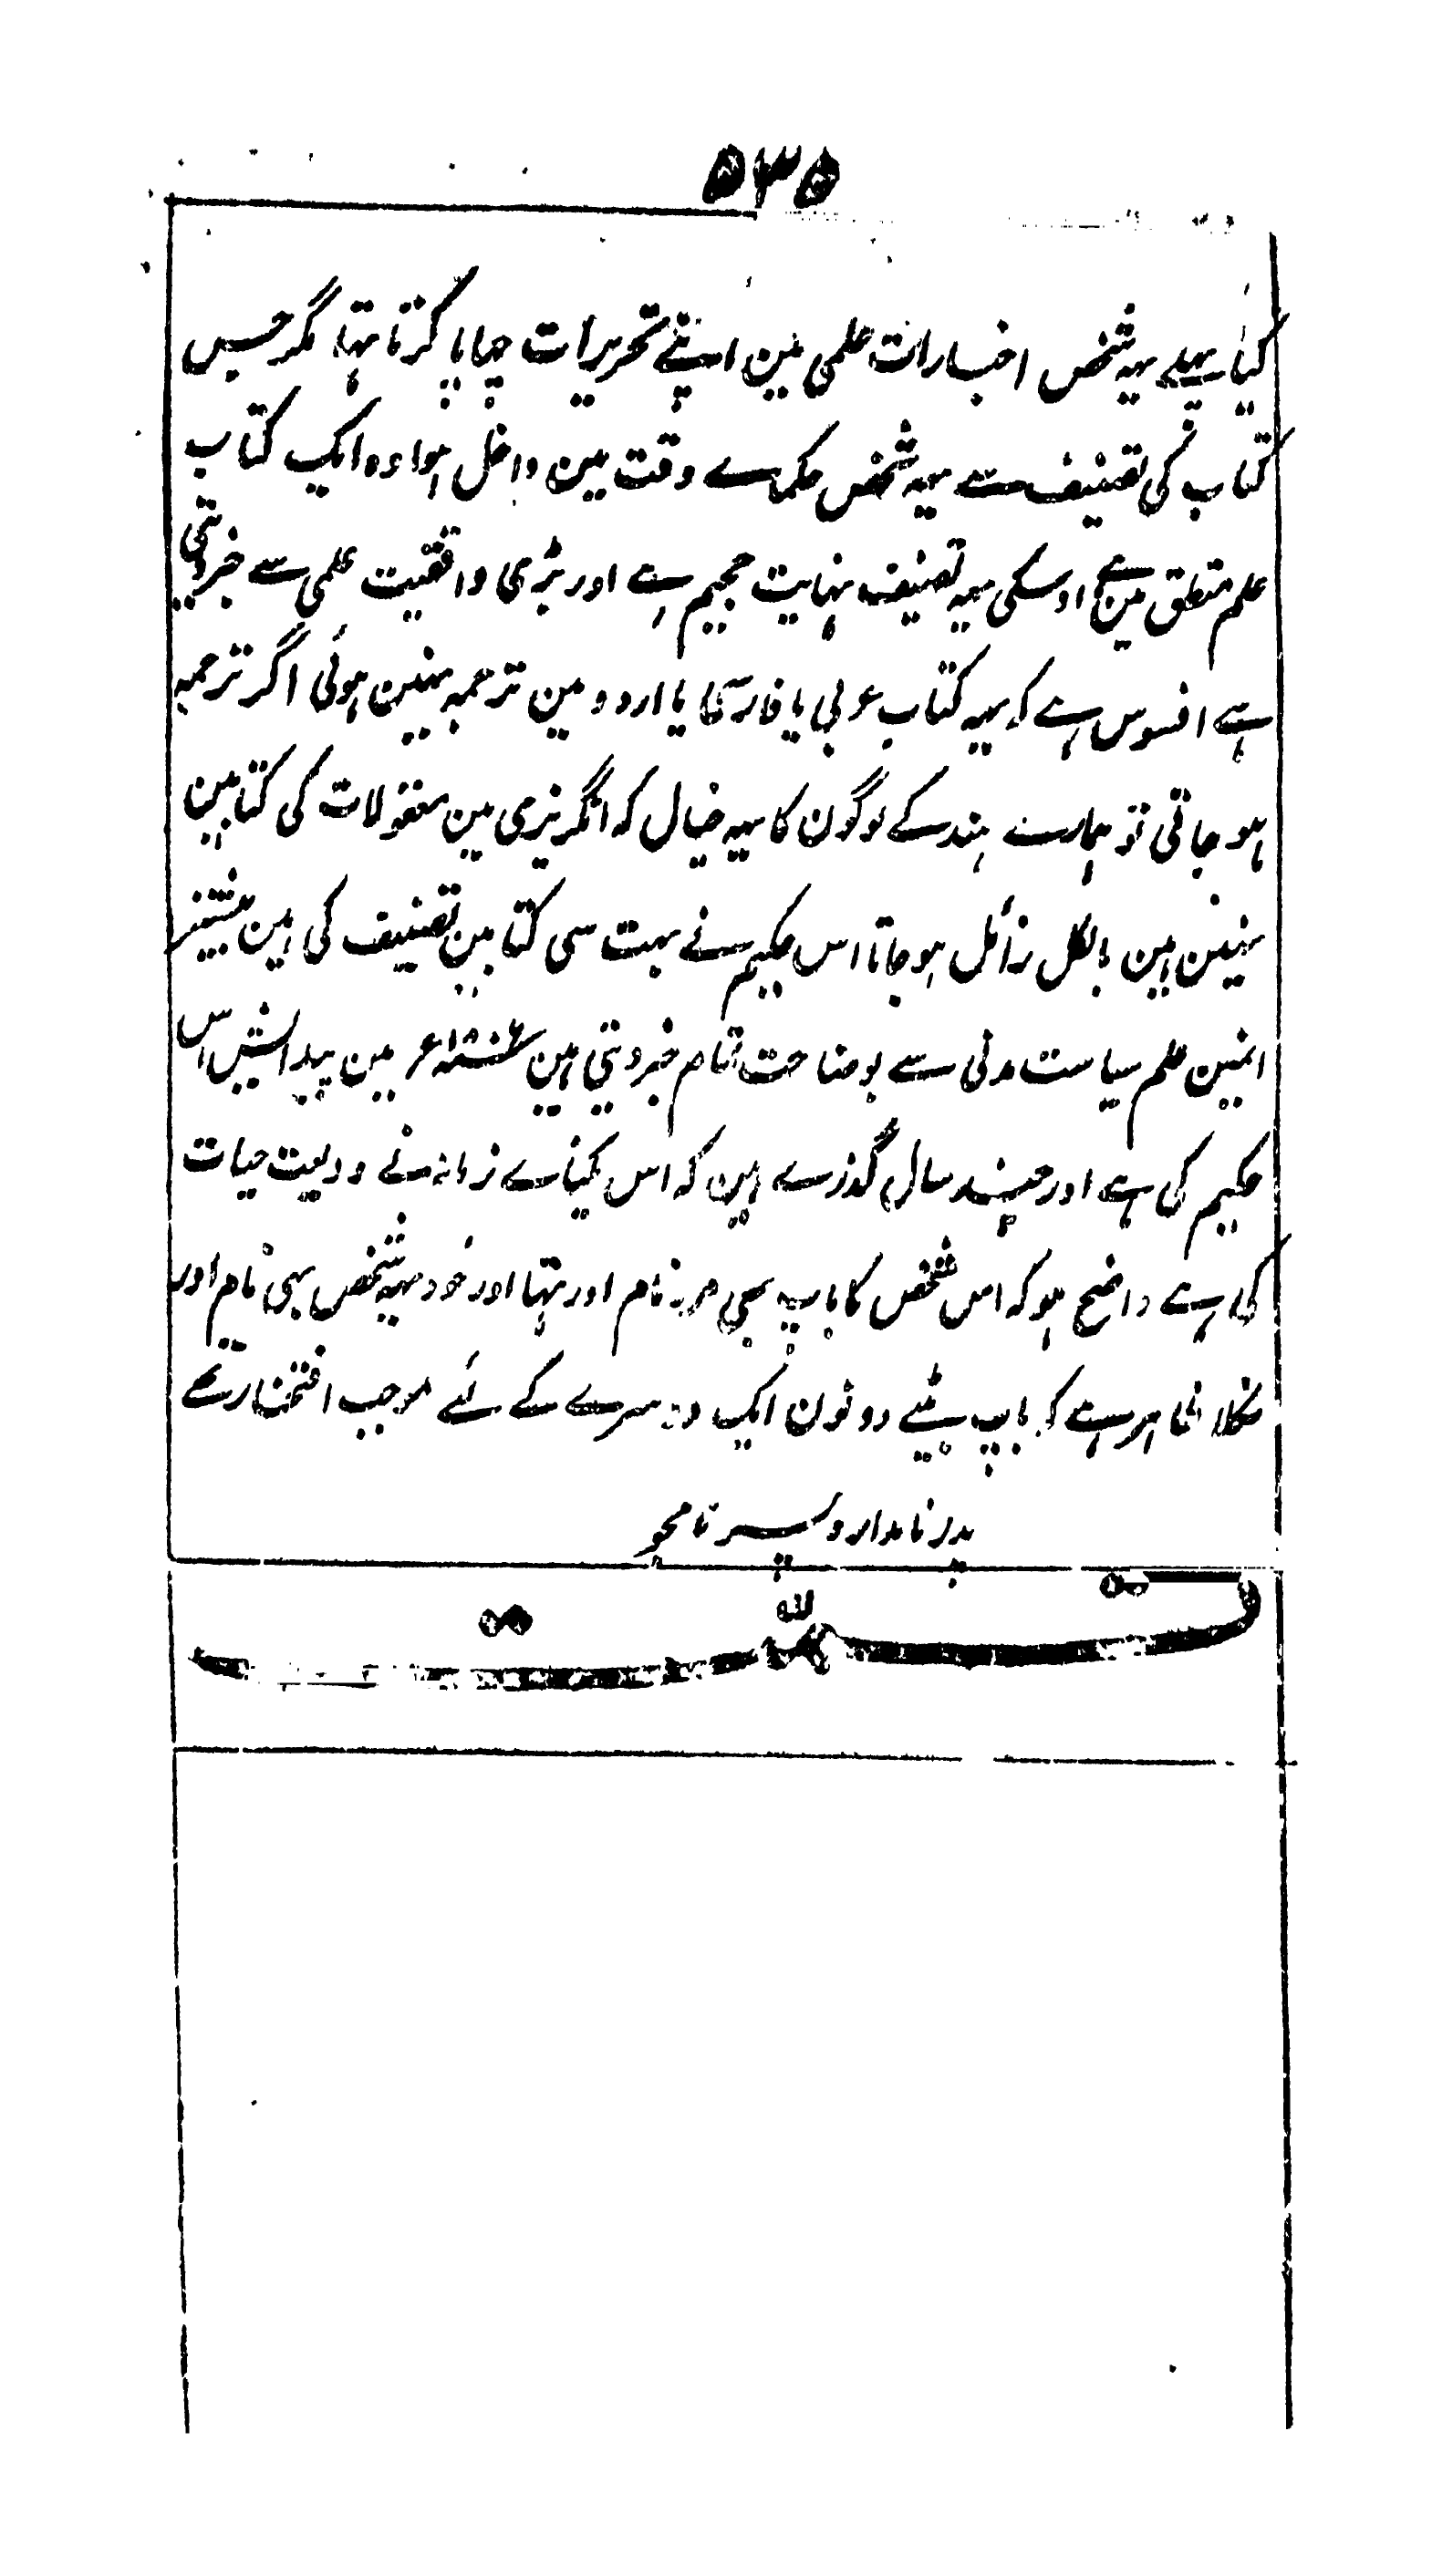 ۵۳۵
کیا پہلے یہہ شخص اخبارات علمی مین اپنے تحریرات چہاپا کرتا تہا مگر جس
کتاب کی تصنیف سے یہہ شخص حکماے وقت مین داخل ہوا وہ ایک کتاب
علم منطق مین ہے اوسکی یہہ تصنیف نہایت حجیم ہے اور بڑی واقفیت علمی سے خبر دیتی
ہے افسوس ہے کہ یہہ کتاب عربی یا فارسی یا اردو مین ترجمہ نہین ہوئی اگر ترجمہ
ہو جاتی تو ہمارے ہند کے لوگون کا یہہ خیال کہ انگریزی مین معقولات کی کتابین
نہین ہین بالکل زائل ہو جاتا اس حکیم نے بہت سی کتابین تصنیف کی ہین بیشتر
انمین علم سیاست مدنی سے بوضاحت تمام خبر دیتی ہین مین پیدایش اس
حکیم کی ہے اور چند سال گذرے ہین کہ اس یکتاے زمانہ نے ودیعت حیات
کی ہے واضح ہو کہ اس شخص کا باپ بھی مرد نام اور تہا اور خود یہہ شخص بہی نام اور
نکلا ظاہر ہے کہ باپ بیٹے دونون ایک دوسرے کے لئے موجب افتخار تھے
پدر نامدار و پسر نامجو